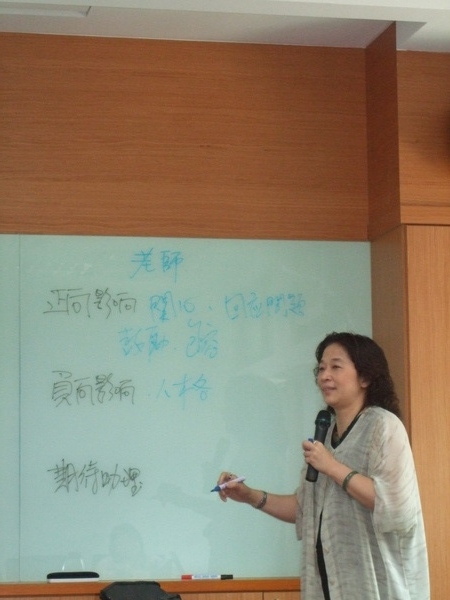 老師
正向影响 關心、回應問題
鼓勵、包容
負向影响 人格
期待助理